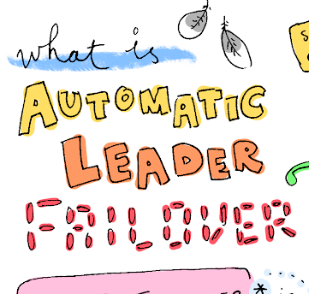 what is
AUTOMATIC
LEADER
FAILOVER